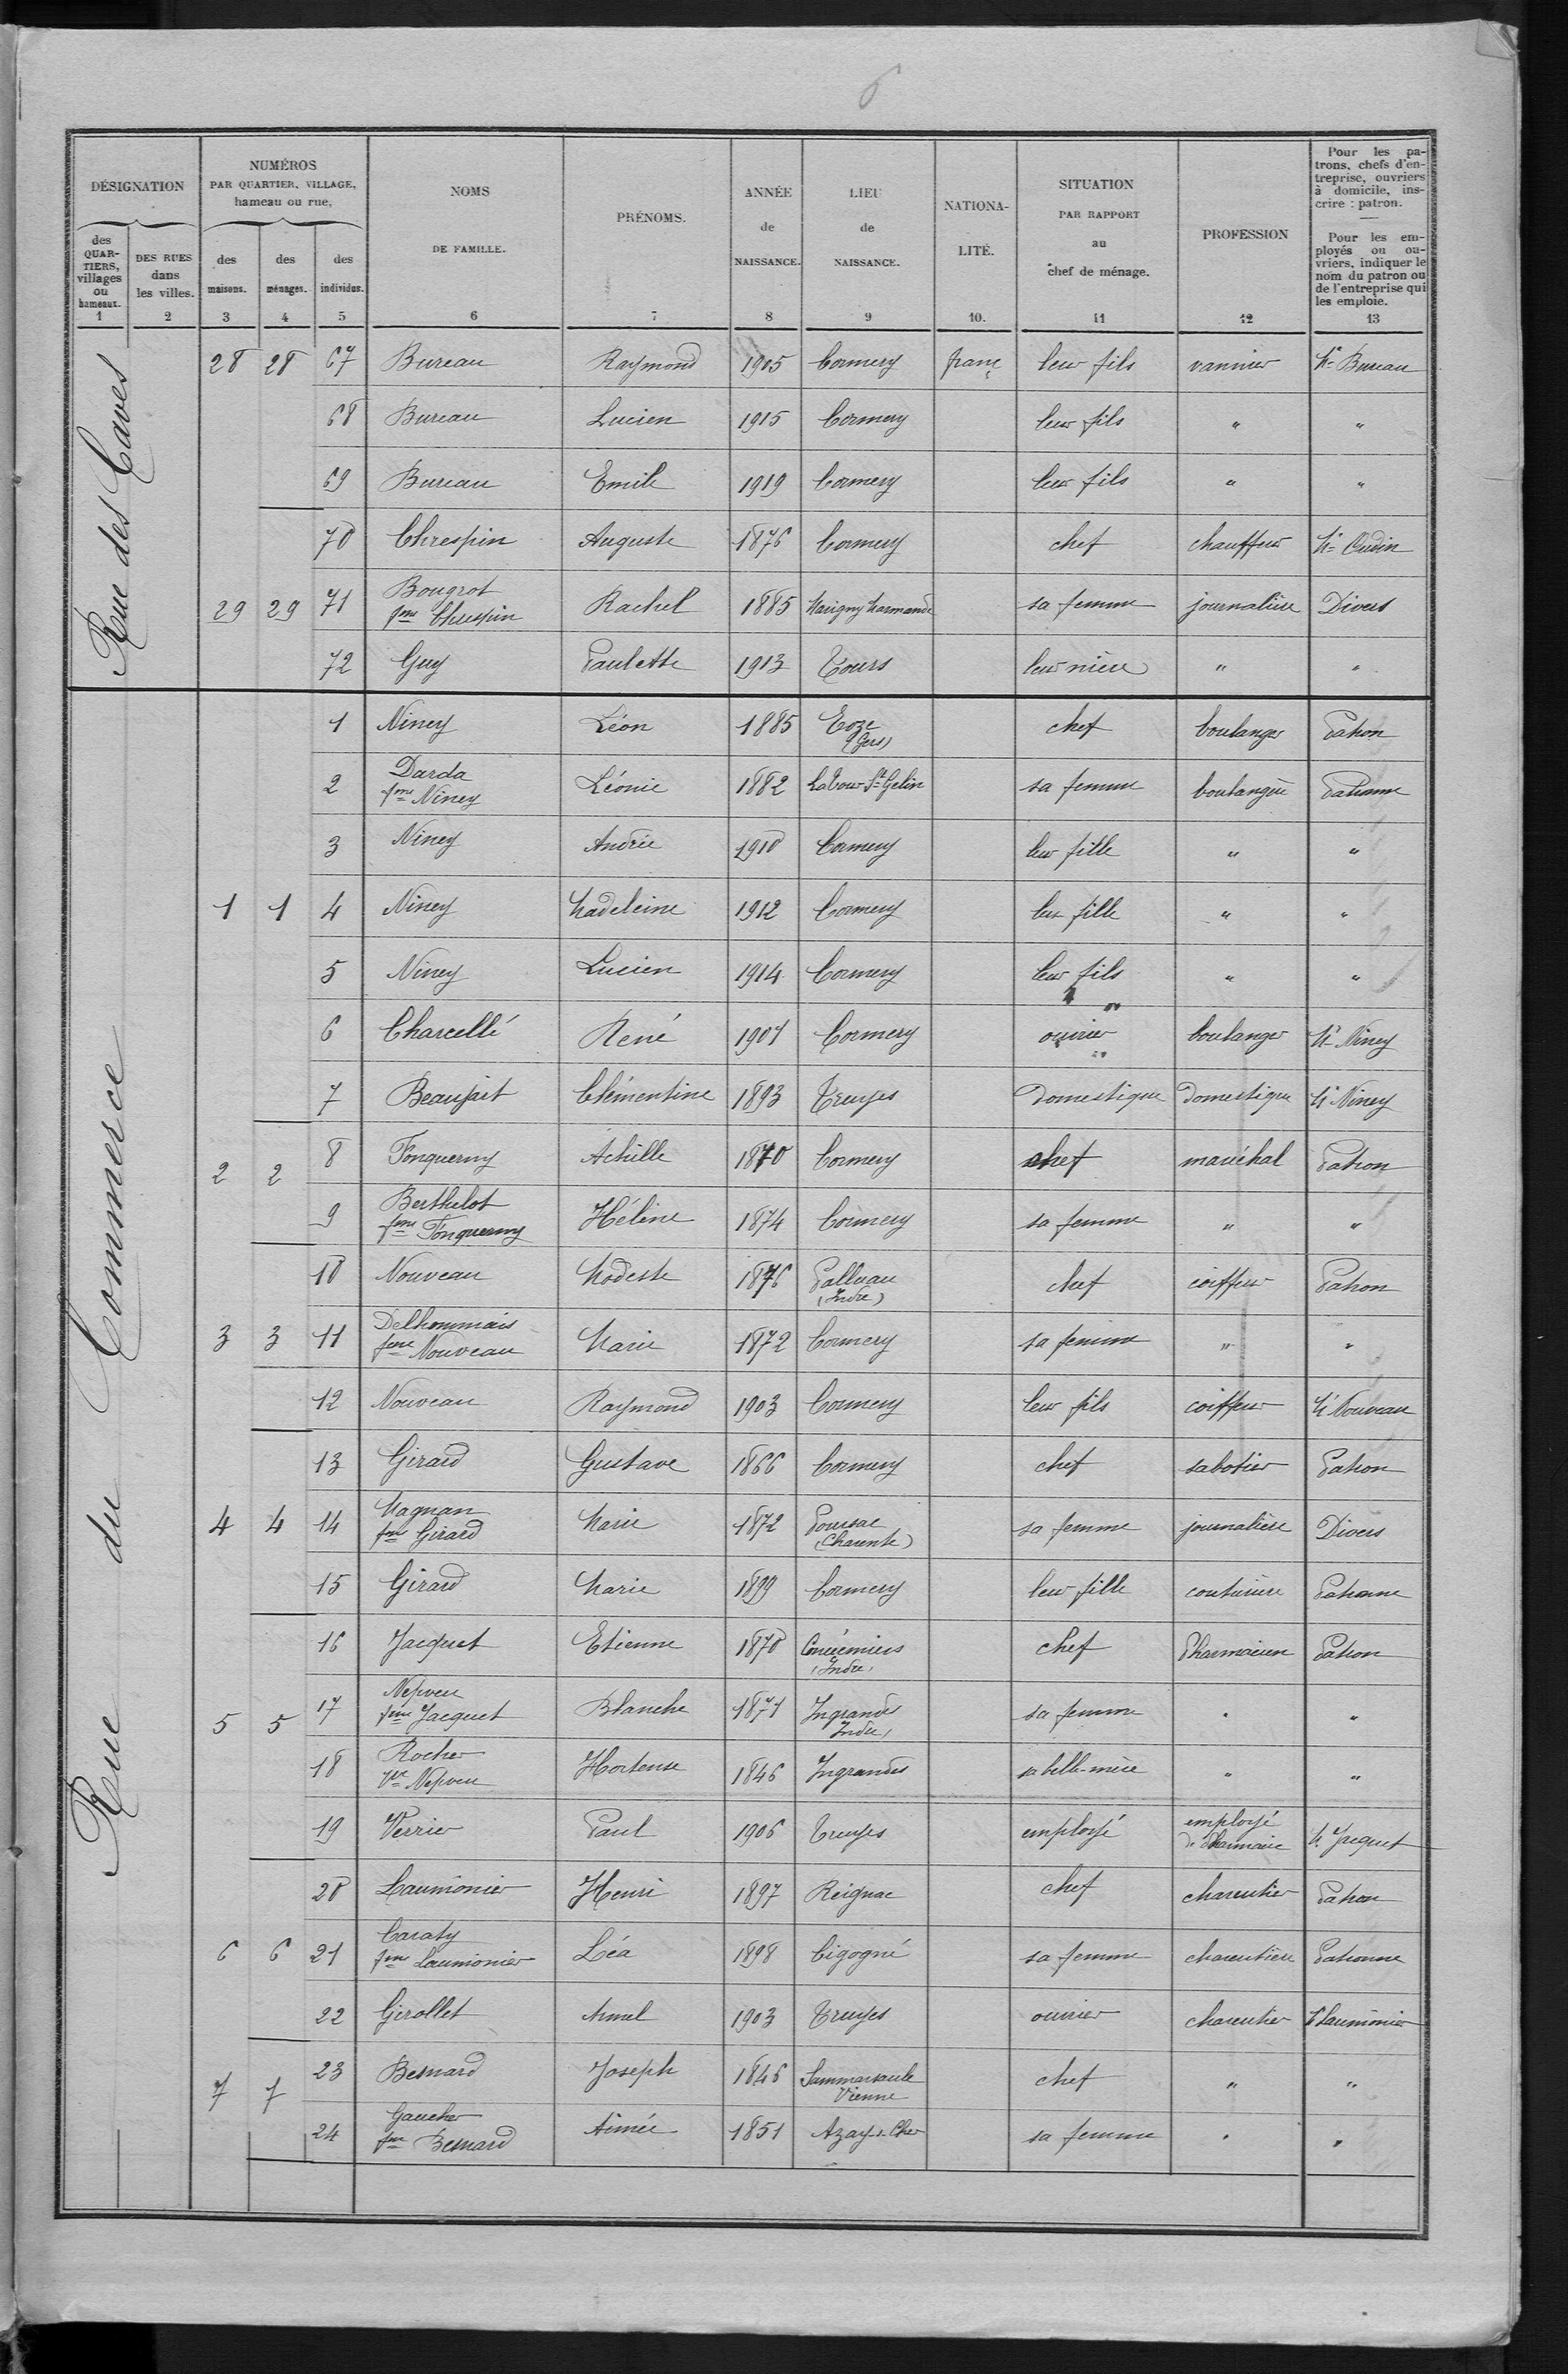 6
DÉSIGNATION
NUMÉROS
PAR QUARTIER, VILLAGE,
hameau ou rue,
des QUAR-TIERS, villages ou hameaux.
DES RUES dans les villes.
des maisons.
des ménages.
des individus.
NOMS DE FAMILLE.
PRÉNOMS.
ANNÉE de NAISSANCE.
LIEU de NAISSANCE.
NATIONA-LITÉ.
SITUATION PAR RAPPORT au chef de ménage.
PROFESSION
Pour les pa-trons, chefs d'en-treprise, ouvriers à domicile, ins-crire : patron.
Pour les em-ployés ou ou-vriers, indiquer le nom du patron ou de l'entreprise qui les emploie.
1 2 3 4 5 6 7 8 9 10. 11 12 13
Rue des Caves
28 28 67 Bureau Raymond 1905 Cormery franç leur fils vannier Mr Bureau
68 Bureau Lucien 1915 Cormery leur fils " "
69 Bureau Emile 1919 Cormery leur fils " "
70 Chrespin Auguste 1876 Cormery chef chauffeur Mr Oudin
29 29 71 Bougrot fme Chrespin Rachel 1885 Marigny Marmande sa femme journalière Divers
72 Guy Paulette 1913 Tours leur nièce " "
Rue du Commerce
1 Niney Léon 1885 Eoze (Gers) chef boulanger Patron
2 Darda fme Niney Léonie 1882 La Tour St Gelin sa femme boulangère Patronne
3 Niney Andrée 1910 Cormery leur fille " "
1 1 4 Niney Madeleine 1912 Cormery leur fille " "
5 Niney Lucien 1914 Cormery leur fils " "
6 Charcellé René 1907 Cormery ouvrier boulanger Mr Niney
7 Beaujart Clémentine 1893 Truyes Domestique Domestique Mr Niney
2 2 8 Fonquerny Achille 1870 Cormery chef maréchal Patron
9 Berthelot fme Fonquerny Hélène 1874 Cormery sa femme " "
10 Nouveau Modeste 1876 Palluau (Indre) chef coiffeur Patron
3 3 11 Delhommais fme Nouveau Marie 1872 Cormery sa femme " "
12 Nouveau Raymond 1903 Cormery leur fils coiffeur Mr Nouveau
13 Girard Gustave 1866 Cormery chef sabotier Patron
4 4 14 Magnan fme Girard Marie 1872 Poursac (Charente) sa femme journalière Divers
15 Girard Marie 1899 Cormery leur fille couturière Patronne
16 Jacquet Etienne 1870 Concrémiers (Indre) chef Pharmacien Patron
5 5 17 Nepveu fme Jacquet Blanche 1871 Ingrandes Indre, sa femme " "
18 Rocher Vve Nepveu Hortense 1846 Ingrandes sa belle-mère " "
19 Verrier Paul 1906 Truyes employé employé de Pharmacie M. Jacquet
20 Laumônier Henri 1897 Reignac chef charcutier Patron
6 6 21 Caraty fme Laumonier Léa 1898 Cigogné sa femme charcutière Patronne
22 Girollet Armel 1903 Truyes ouvrier charcutier Mr Laumônier
7 7 23 Besnard Joseph 1846 Vienne chef " "
24 Gaucher fme Besnard Aimée 1851 Azay-s-Cher sa femme " "